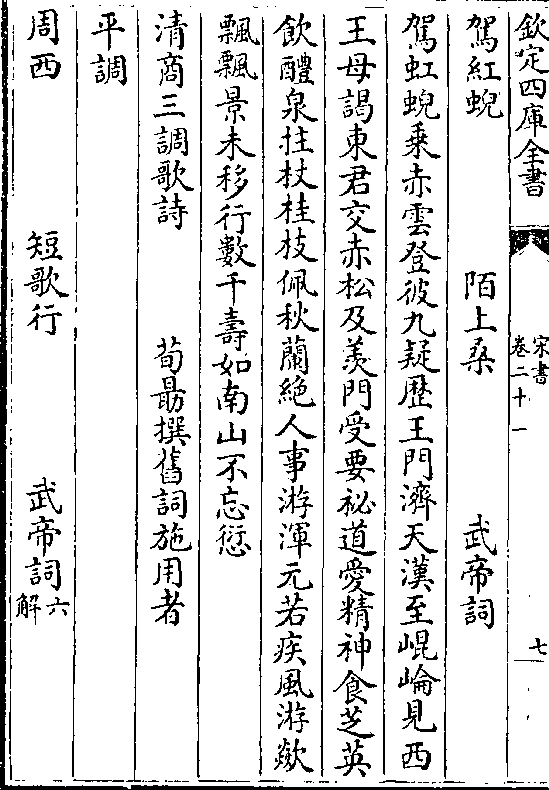 欽定四庫全書
宋書
卷二十一
七
駕紅蜺 陌上桑 武帝詞
駕虹蜺乘赤雲登彼九疑歷王門濟天漢至崐崘見西
王母謁東君交赤松及羨門受要秘道愛精神食芝英
飲醴泉拄杖桂枝佩秋蘭絶人事游渾元若疾風游歘
飄飄景未移行數千壽如南山不忘愆
清商三調歌詩 荀勗撰舊詞施用者
平調
周西 短歌行 武帝詞六解